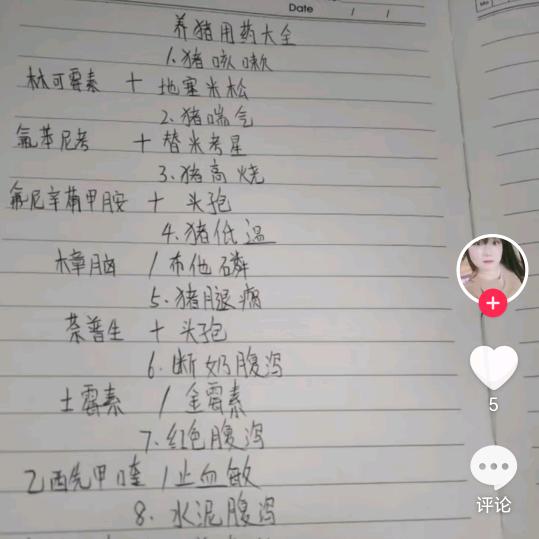 Date / /
No
养猪用药大全
1.猪咳嗽
林可霉素 + 地塞米松
2.猪喘气
氟苯尼考 + 替米考星
3.猪高烧
氟尼辛葡甲胺 + 头孢
4.猪低温
樟脑 / 布他磷
5.猪腿瘸
萘普生 + 头孢
6.断奶腹泻
土霉素 / 金霉素
7.红色腹泻
乙酰先甲喹 / 止血敏
8.水泥腹泻
5
评论